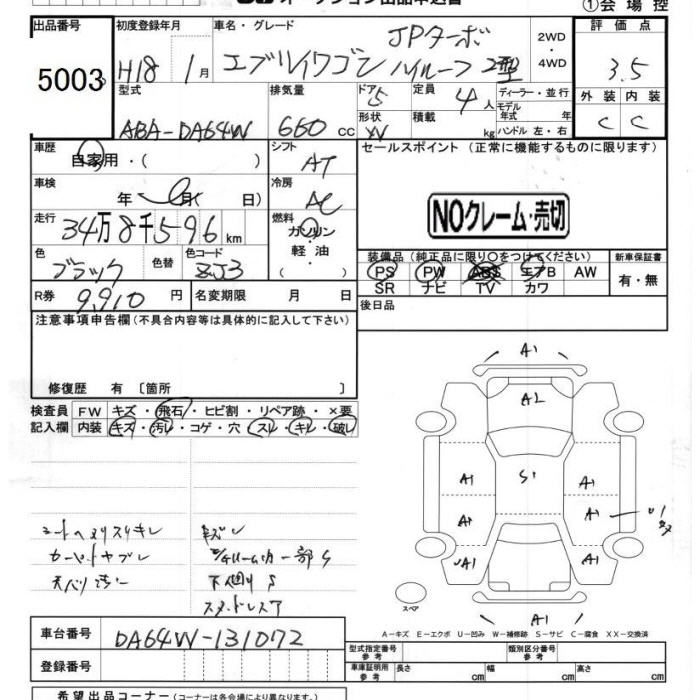 ①会 場 控
出品番号
5003
初度登録年月
H18 1月
車名・グレード
JPターボ
エブリイワゴン ハイルーフ 2型
2WD
・
4WD
評 価 点
3.5
型式
ABA-DA64W
排気量
660 cc
ドア 5
形状 W
定員 4人
積載 kg
ディーラー・並行
モデル
年式 年
ハンドル 左・右
外 装 内 装
C C
車歴
自家用・( )
シフト
AT
車検
年 月( 日)
冷房
AC
走行
34万8千596km
燃料
ガソリン
・
軽 油
( )
色
ブラック
色替
色コード
ZJ3
R券 9,910 円
名変期限 月 日
セールスポイント (正常に機能するものに限ります)
NOクレーム・売切
装備品 (純正品に限り○をつけてください)
PS PW ABS エアB AW
SR ナビ TV カワ
新車保証書
有・無
後日品
注意事項申告欄(不具合内容等は具体的に記入して下さい)
修復歴 有 〔箇所 〕
検査員
記入欄
FW キズ・飛石・ヒビ割・リペア跡・×要
内装 キズ・汚レ・コゲ・穴・スレ・キレ・破レ
シートヘタリスリキレ
カーペットヤブレ
天バリ汚レ
キズレ
下廻り S
スタッドレスタ
A1
A2
A1 S1 A1
A1 A1 U1
A1 A1
A1
スペア
A-キズ E-エクボ U-凹み W-補修跡 S-サビ C-腐食 XX-交換済
車台番号 DA64W-131072
登録番号
型式指定番号
参考
類別区分番号
参考
車庫証明用
参考
長さ cm 幅 cm 高さ cm
希望出品コーナー (コーナーは各会場により異なります。)